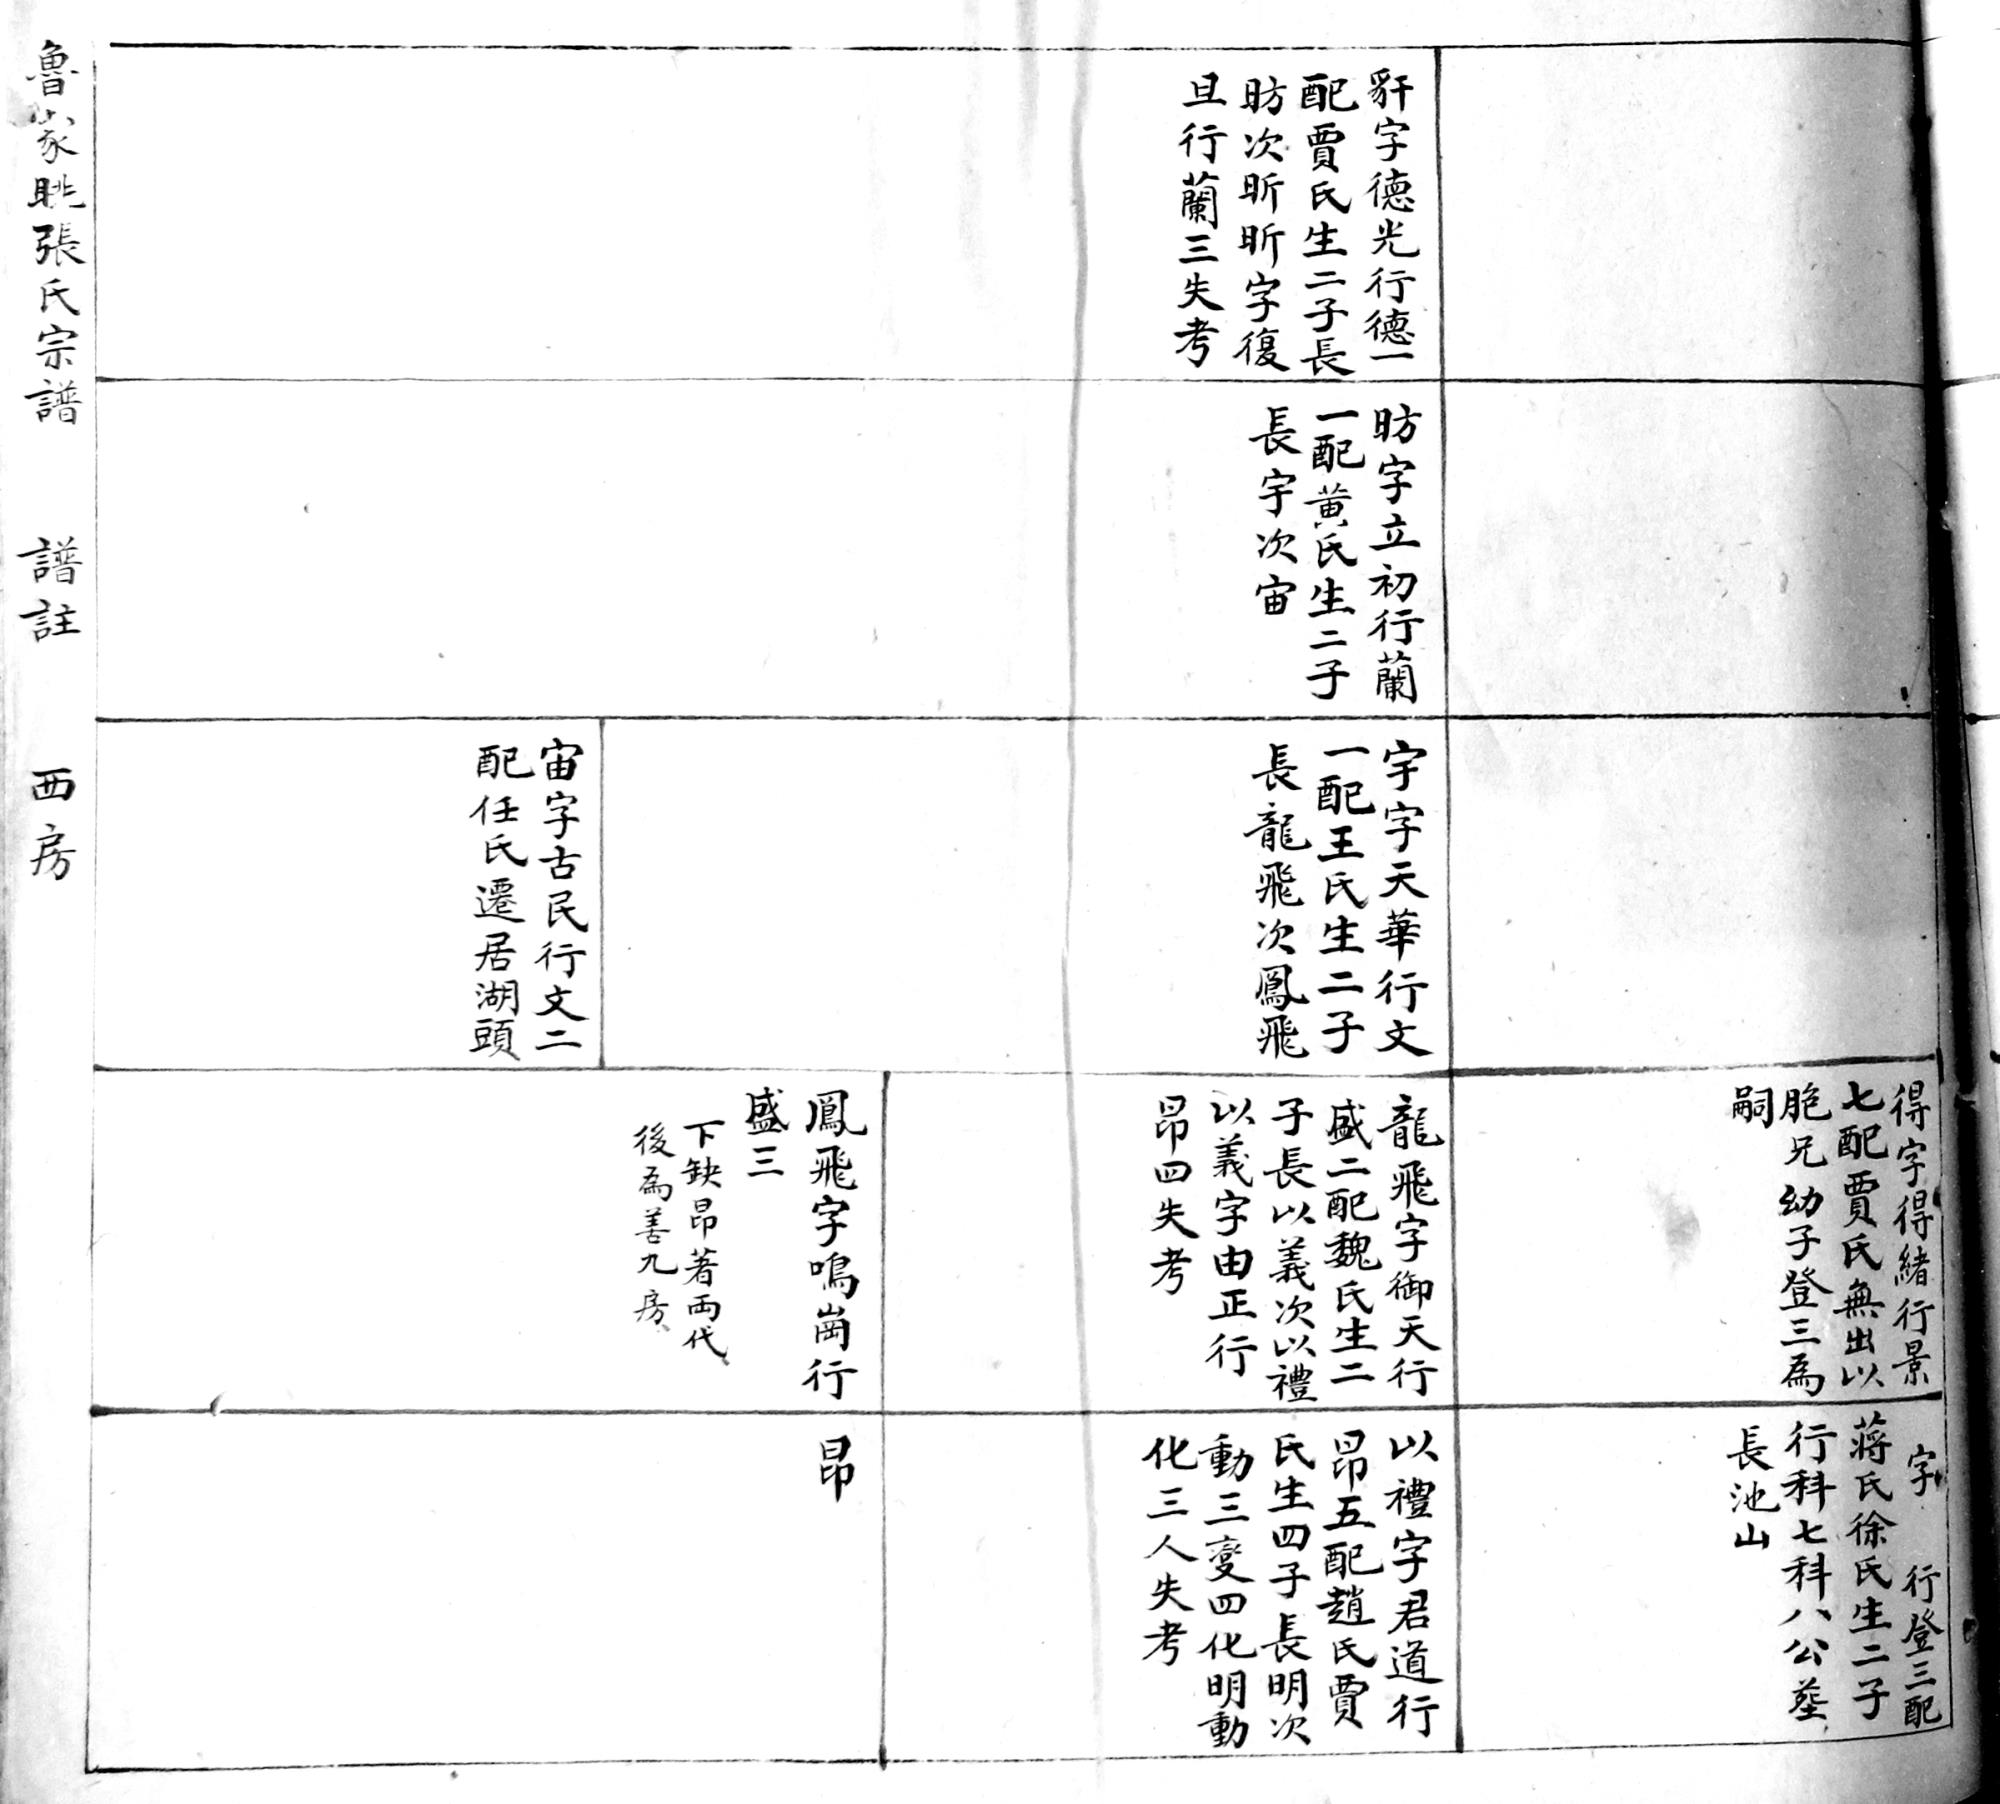 得字得緒行景
七配賈氏無出以
胞兄幼子登三為
嗣
字 行登三配
蔣氏徐氏生二子
行科七科八公塟
長池山
豻字德光行德一
配賈氏生二子長
昉次昕昕字復
旦行蘭三失考
昉字立初行蘭
一配黄氏生二子
長宇次宙
宇字天華行文
一配王氏生二子
長龍飛次鳳飛
龍飛字御天行
盛二配魏氏生二
子長以義次以禮
以義字由正行
昂四失考
以禮字君道行
昂五配趙氏賈
氏生四子長明次
動三變四化明動
化三人失考
宙字古民行文二
配任氏遷居湖頭
鳳飛字鳴崗行
盛三
下缺昂著両代
後為善九房
昂
魯家眺張氏宗譜 譜註 西房